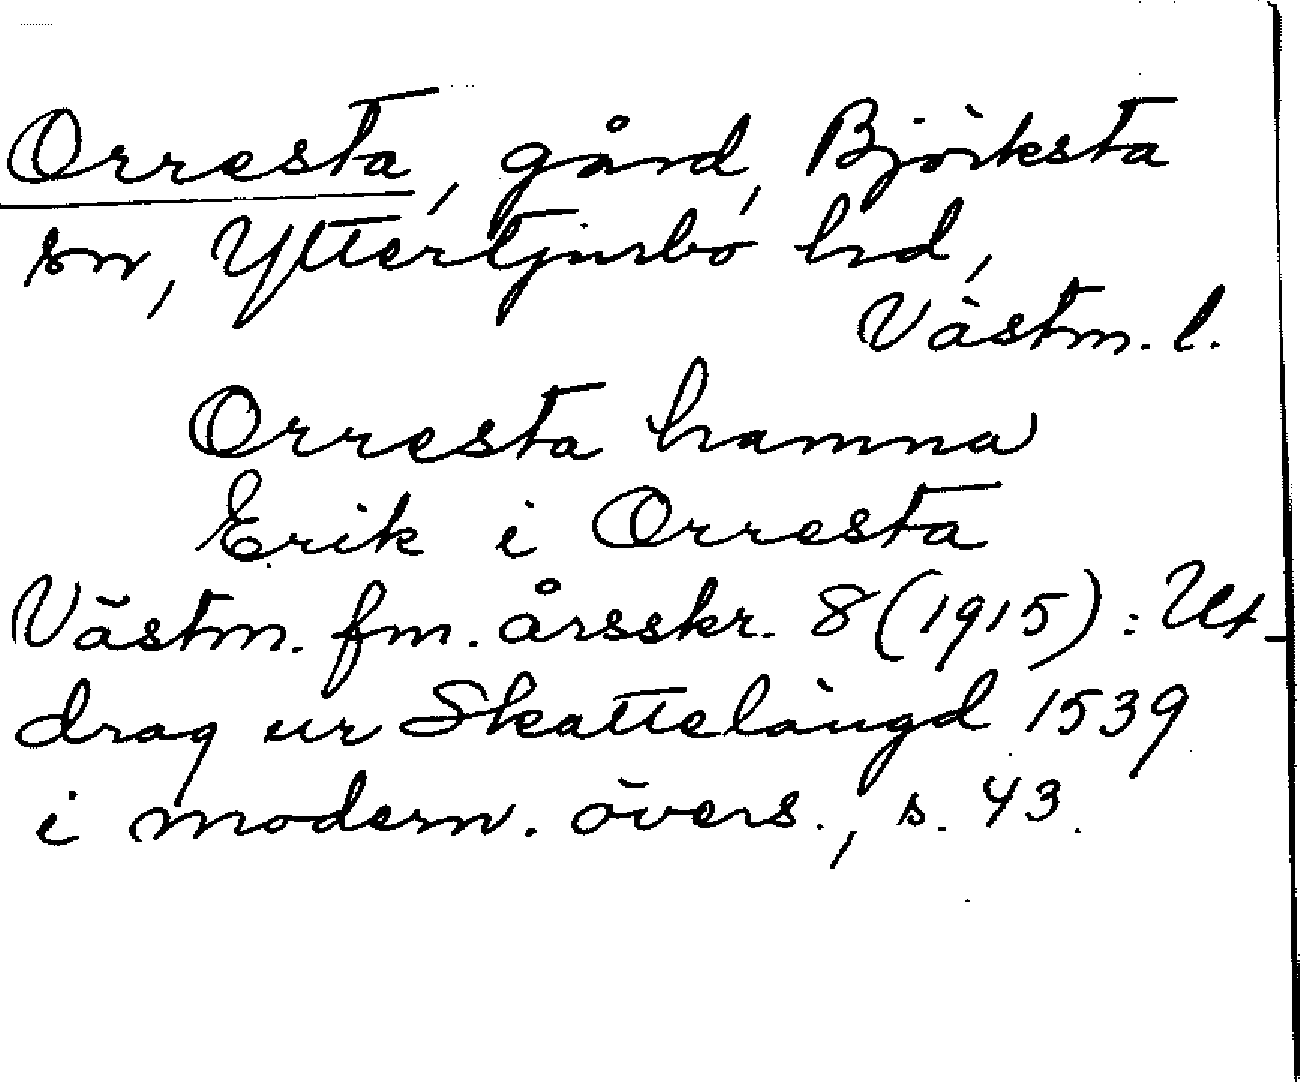 Orresta, gård, Björksta
sn, Yttertjurbo hd,
Västm. l.
Orresta hamna
Erik i Orresta
Västm. fm. årsskr. 8 (1915): Ut-
drag ur Skattelängd 1539
i modern. övers., s. 43.